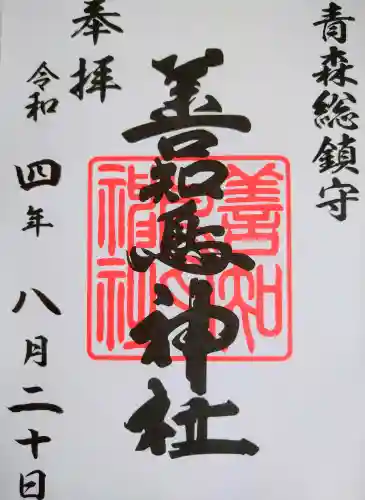 青森総鎮守
善知鳥神社
善知鳥神社
奉拝
令和四年八月二十日